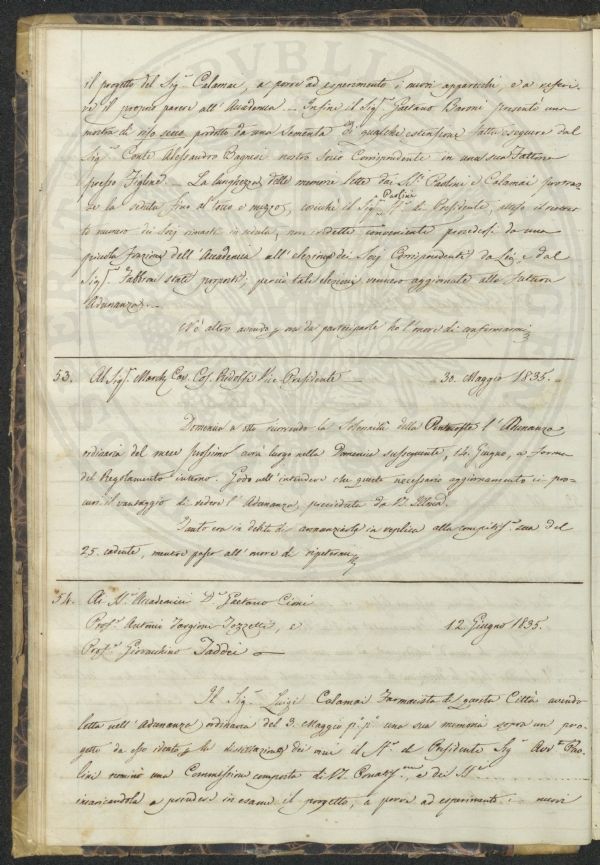 il progetto del Sig.r Calamai, a porre ad esperimento i nuovi apparecchi, e a riferi-
re il proprio parere all'Accademia — Infine il Sig.r Gaetano Baroni presentò una
mostra di riso secco prodotto da una sementa di qualche estensione fatta eseguire dal
Sig.r Conte Alessandro nostro Socio Corrispondente in una sua Fattoria
presso Figline — La lunghezza delle memorie lette dai SS.ri Paolini e Calamai protras-
se la seduta fino al tocco e mezzo, cosicchè il Sig.r Paolini Presidente, atteso il ristret-
to numero dei Socj rimasti in seduta, non credette conveniente procedersi da una
piccola frazione dell'Accademia all'elezione dei Socj Corrispondenti da Lei e dal
Sig.r Fabbroni stati proposti; perciò tale elezione vennero aggiornate alla futura
Adunanza. —
Nè altro avendo per ora da parteciparle ho l'onore di confermarmi
53. Al Sig.r March. Cav. Cos. Ridolfi Vice Presidente — 30. Maggio 1835.
Domenica a otto ricorrendo la Solennità della Pentecoste l'Adunanza
ordinaria del mese prossimo avrà luogo nella Domenica susseguente, 14. Giugno, a forma
del Regolamento interno. Godo nell'intendere che questo necessario aggiornamento ci pro-
curi il vantaggio di vedere l'Adunanza presieduta da V.
Tanto era in debito di annunziarle in replica alla compitiss. sua del
25. cadente, mentre passo all'onore di ripetermi
54. Ai SS.ri Accademici D.r Gaetano Cioni
Prof.r Antonio Targioni Tozzetti, e 12. Giugno 1835.
Prof.r Giovacchino Taddei —
Il Sig.r Luigi Calamai Farmacista di questa Città avendo
letta nell'Adunanza ordinaria del 3. Maggio p.° p.° una sua memoria sopra un pro-
getto da esso ideato per la disseccazione dei il SS. di Presidente Sig.r Avv.° Pao-
lini nominò una Commissione composta di e dei SS.ri
incaricandola a prendere in esame il progetto, a porre ad esperimento i nuovi